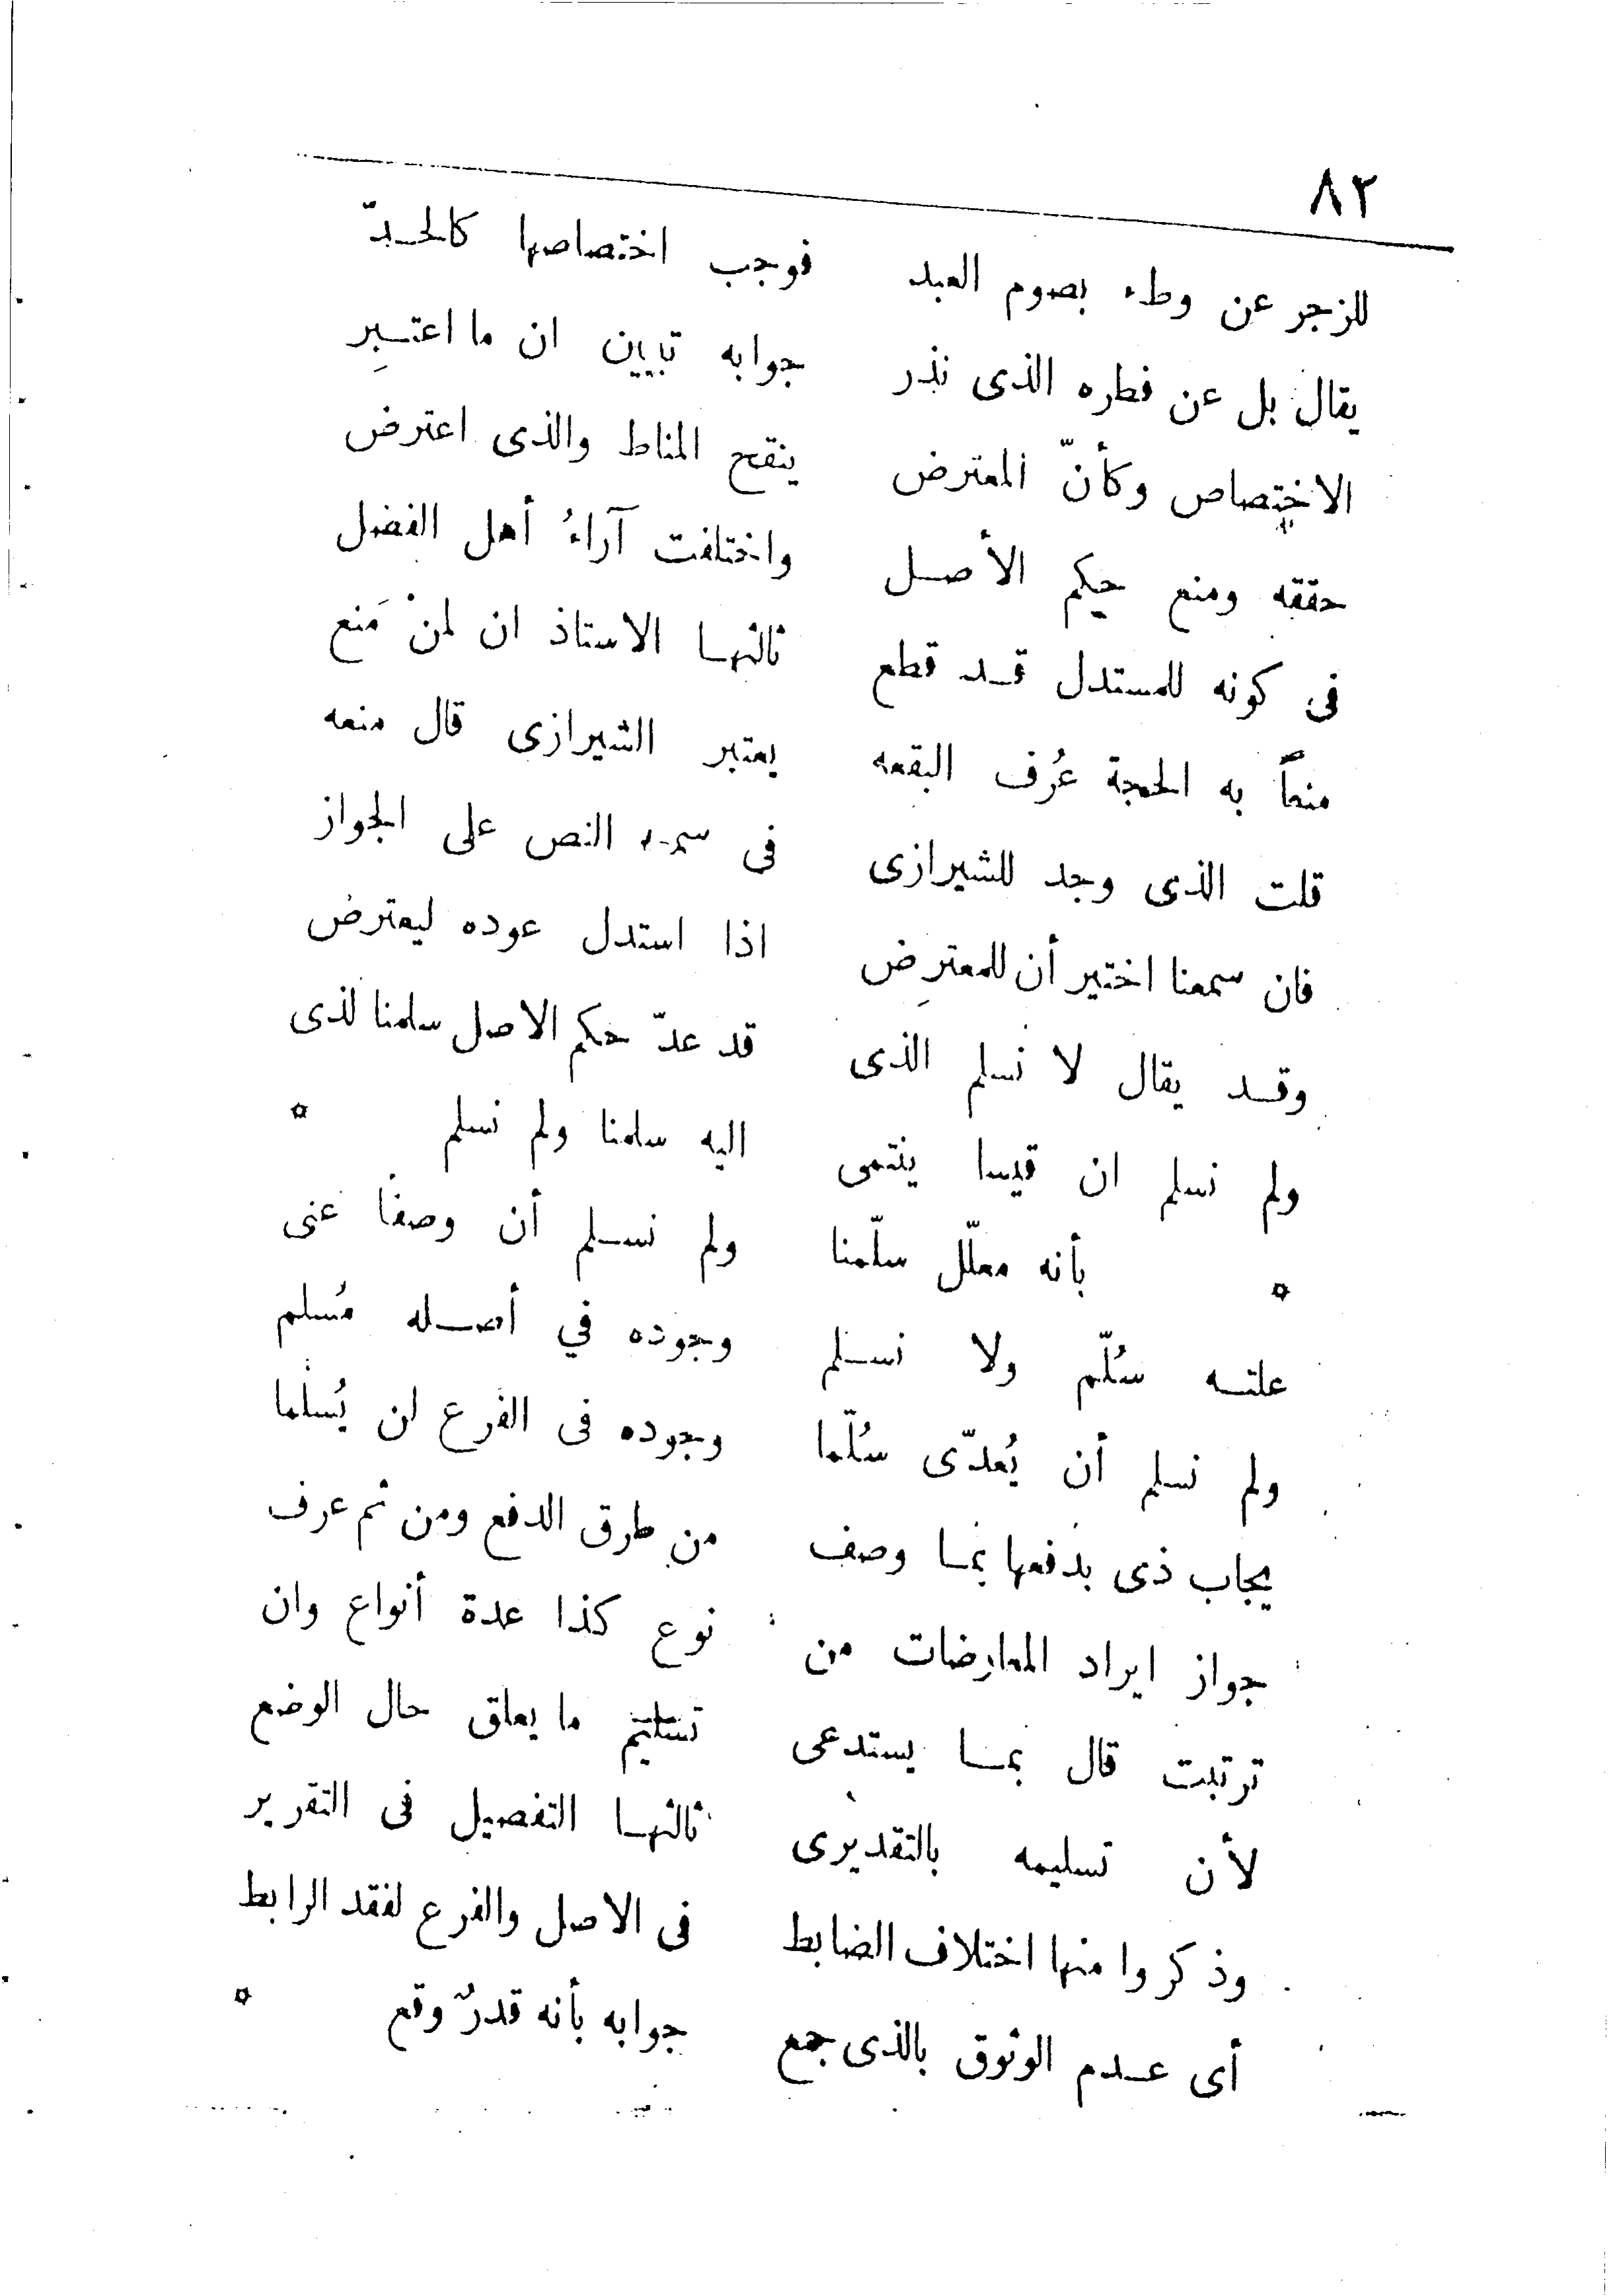 ٨٢
للزجر عن وطء بصوم العبد فوجب اختصاصها كالحدّ
يقال بل عن فطره الذى نذر جوابه تبيين ان ما اعتبِر
الاختصاص وكأنّ المعترض ينقح المناط والذى اعترض
حققه ومنع حكم الأصل واختلفت آراءُ أهل الفضل
فى كونه للمستدل قد قطع ثالثها الاستاذ ان لمنْ مَنع
منعاً به الحجة عُرف البقعه يعتبر الشيرازى قال منعه
قلت الذى وجد للشيرازى فى سمعه النص على الجواز
فان سمعنا اختير أن للمعترِض اذا استدل عوده ليعترض
وقد يقال لا نسلم الذى قد عدّ حكم الاصل سلمنا لذى
ولم نسلم ان قيسا ينتمى اليه سلمنا ولم نسلم *
* بأنه معلّل سلّمنا ولم نسلم أن وصفاً عنى
علته سُلّم ولا نسلم وجوده في أصله مُسلم
ولم نسلم أن يُعدّى سُلّما وجوده فى الفرع لن يُسلما
يجاب ذى بدفعها بما وصف من طرق الدفع ومن ثم عرف
جواز ايراد المعارضات من نوع كذا عدة أنواع وان
ترتبت قال بما يستدعى تسليم ما يعلق حال الوضع
لأن تسليمه بالتقديرى ثالثها التفصيل فى التقرير
وذكروا منها اختلاف الضابط فى الاصل والفرع لفقد الرابط
أى عدم الوثوق بالذى جمع جوابه بأنه قدرٌ وقع *